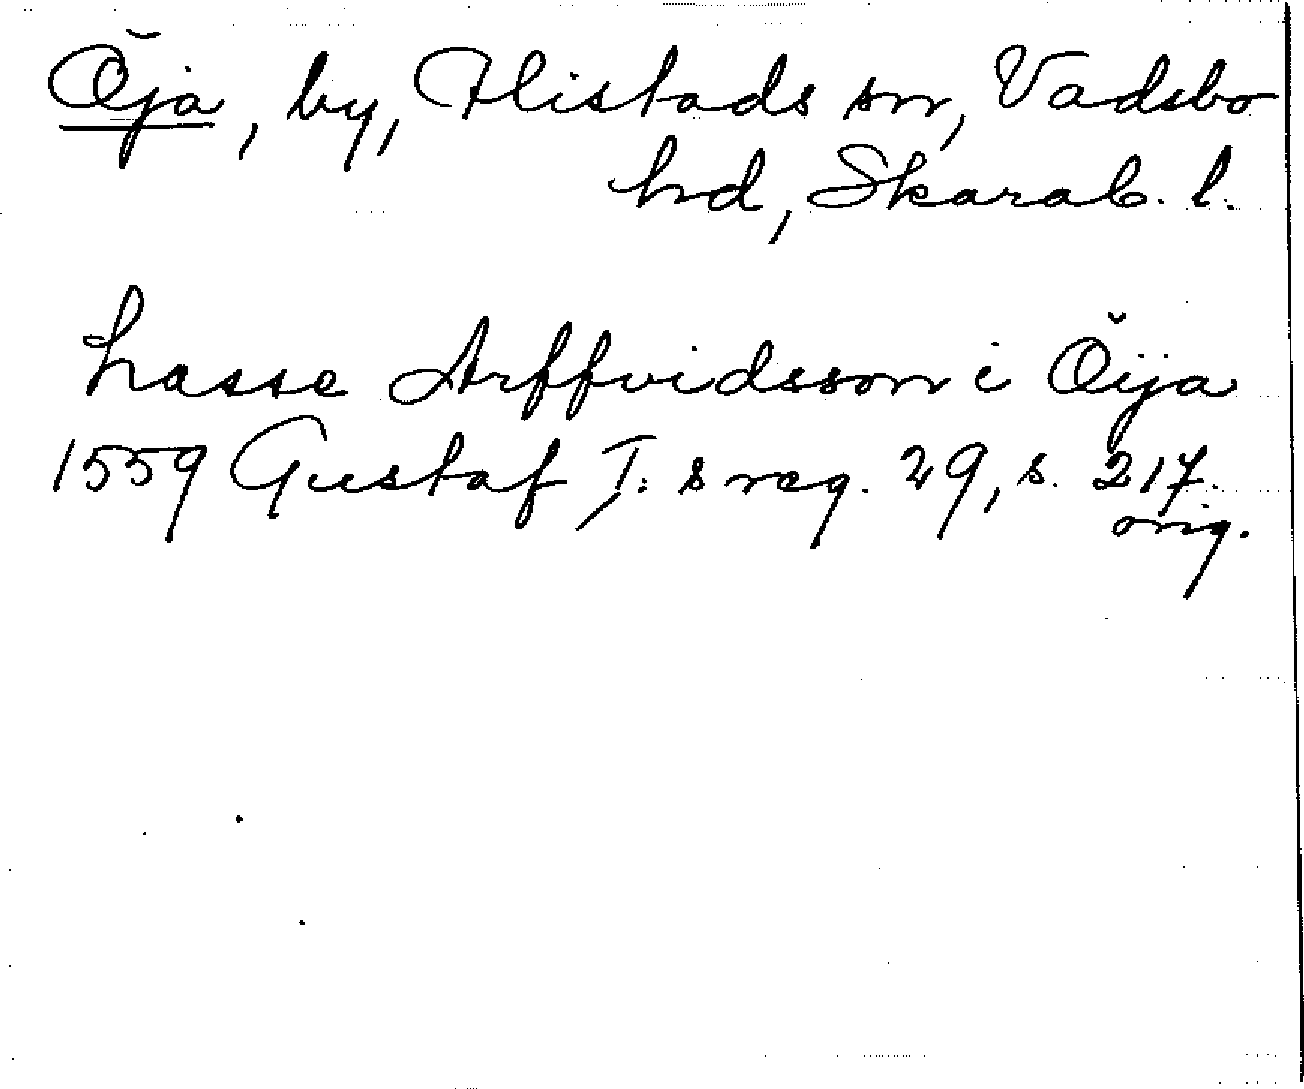 Öja, by, Flistads sn, Vadsbo
hd, Skarab. l.
Lasse Arffvidsson i Öija
1559 Gustaf I: s reg. 29, s. 217.
orig.